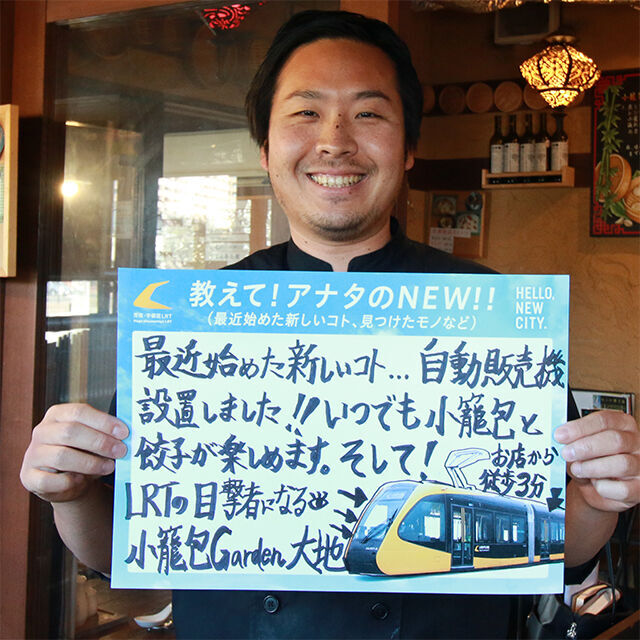 教えて!アナタのNEW!!
(最近始めた新しいコト、見つけたモノなど)
HELLO,
NEW
CITY.
芳賀・宇都宮LRT
Haga-Utsunomiya LRT
最近始めた新しいコト...自動販売機
設置しました!!いつでも小籠包と
餃子が楽しめます。そして!
お店から
徒歩3分
LRTの目撃者になる
小籠包Garden大地